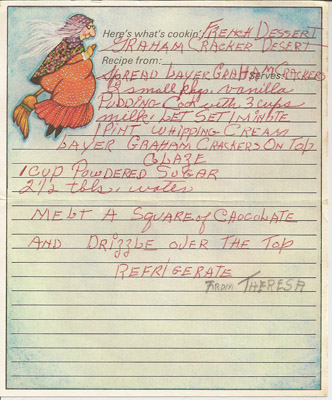 Here's what's cookin' French Dessert
Graham Cracker Desert
Recipe from: Serves:
Spread Layer Graham Crackers
2 small pkgs. vanilla
Pudding Cook with 3 cups
milk. Let Set 1 minute
1 Pint Whipping Cream
Layer Graham Crackers On Top
Glaze
1 cup Powdered Sugar
2 1/2 tbls. water
Melt A Square of Chocolate
And Drizzle over The Top
Refrigerate
From Theresa